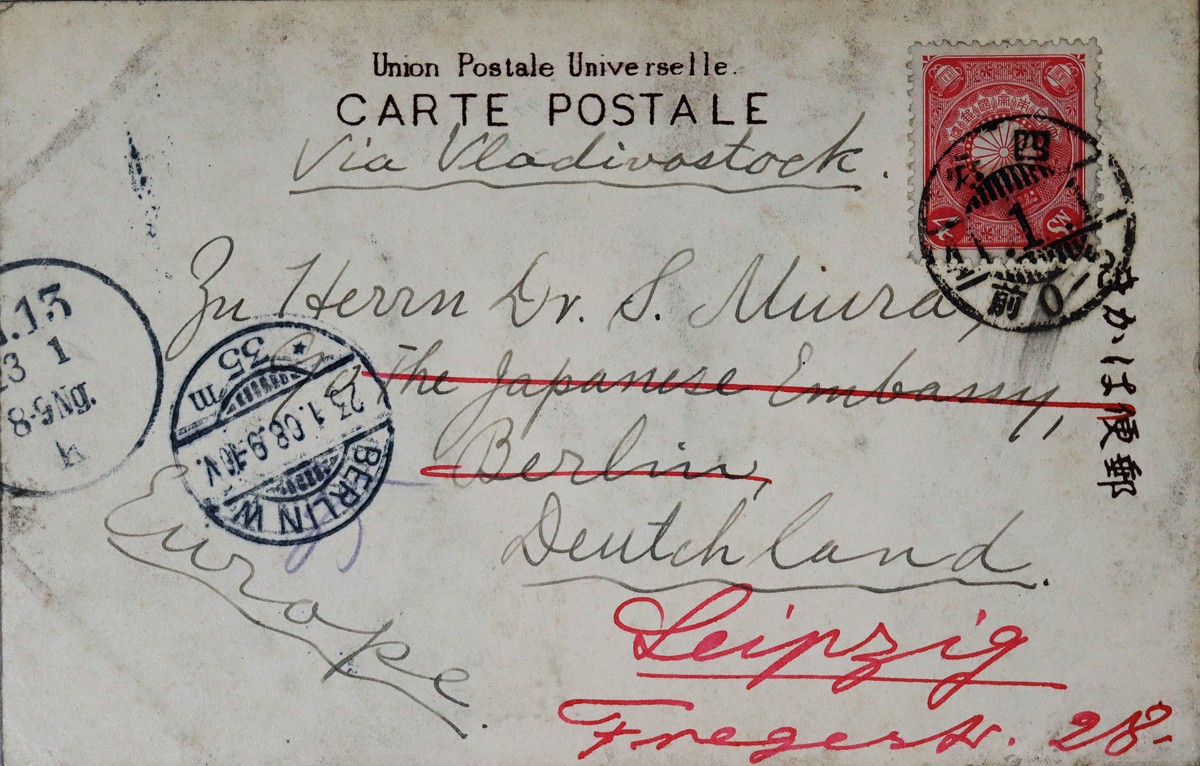 Union Postale Universelle.
CARTE POSTALE
Via Vladivostock.
Zu Herrn Dr. S. Miura,
c/o The Japanese Embassy,
Berlin,
Deutchland.
Europe.
Leipzig
Fregestr. 28.
郵便はかき
4 Sn
四
1.
前 0
35 m
23.1.08.9-10V.
BERLIN W.
.13
23 1
8-9N.